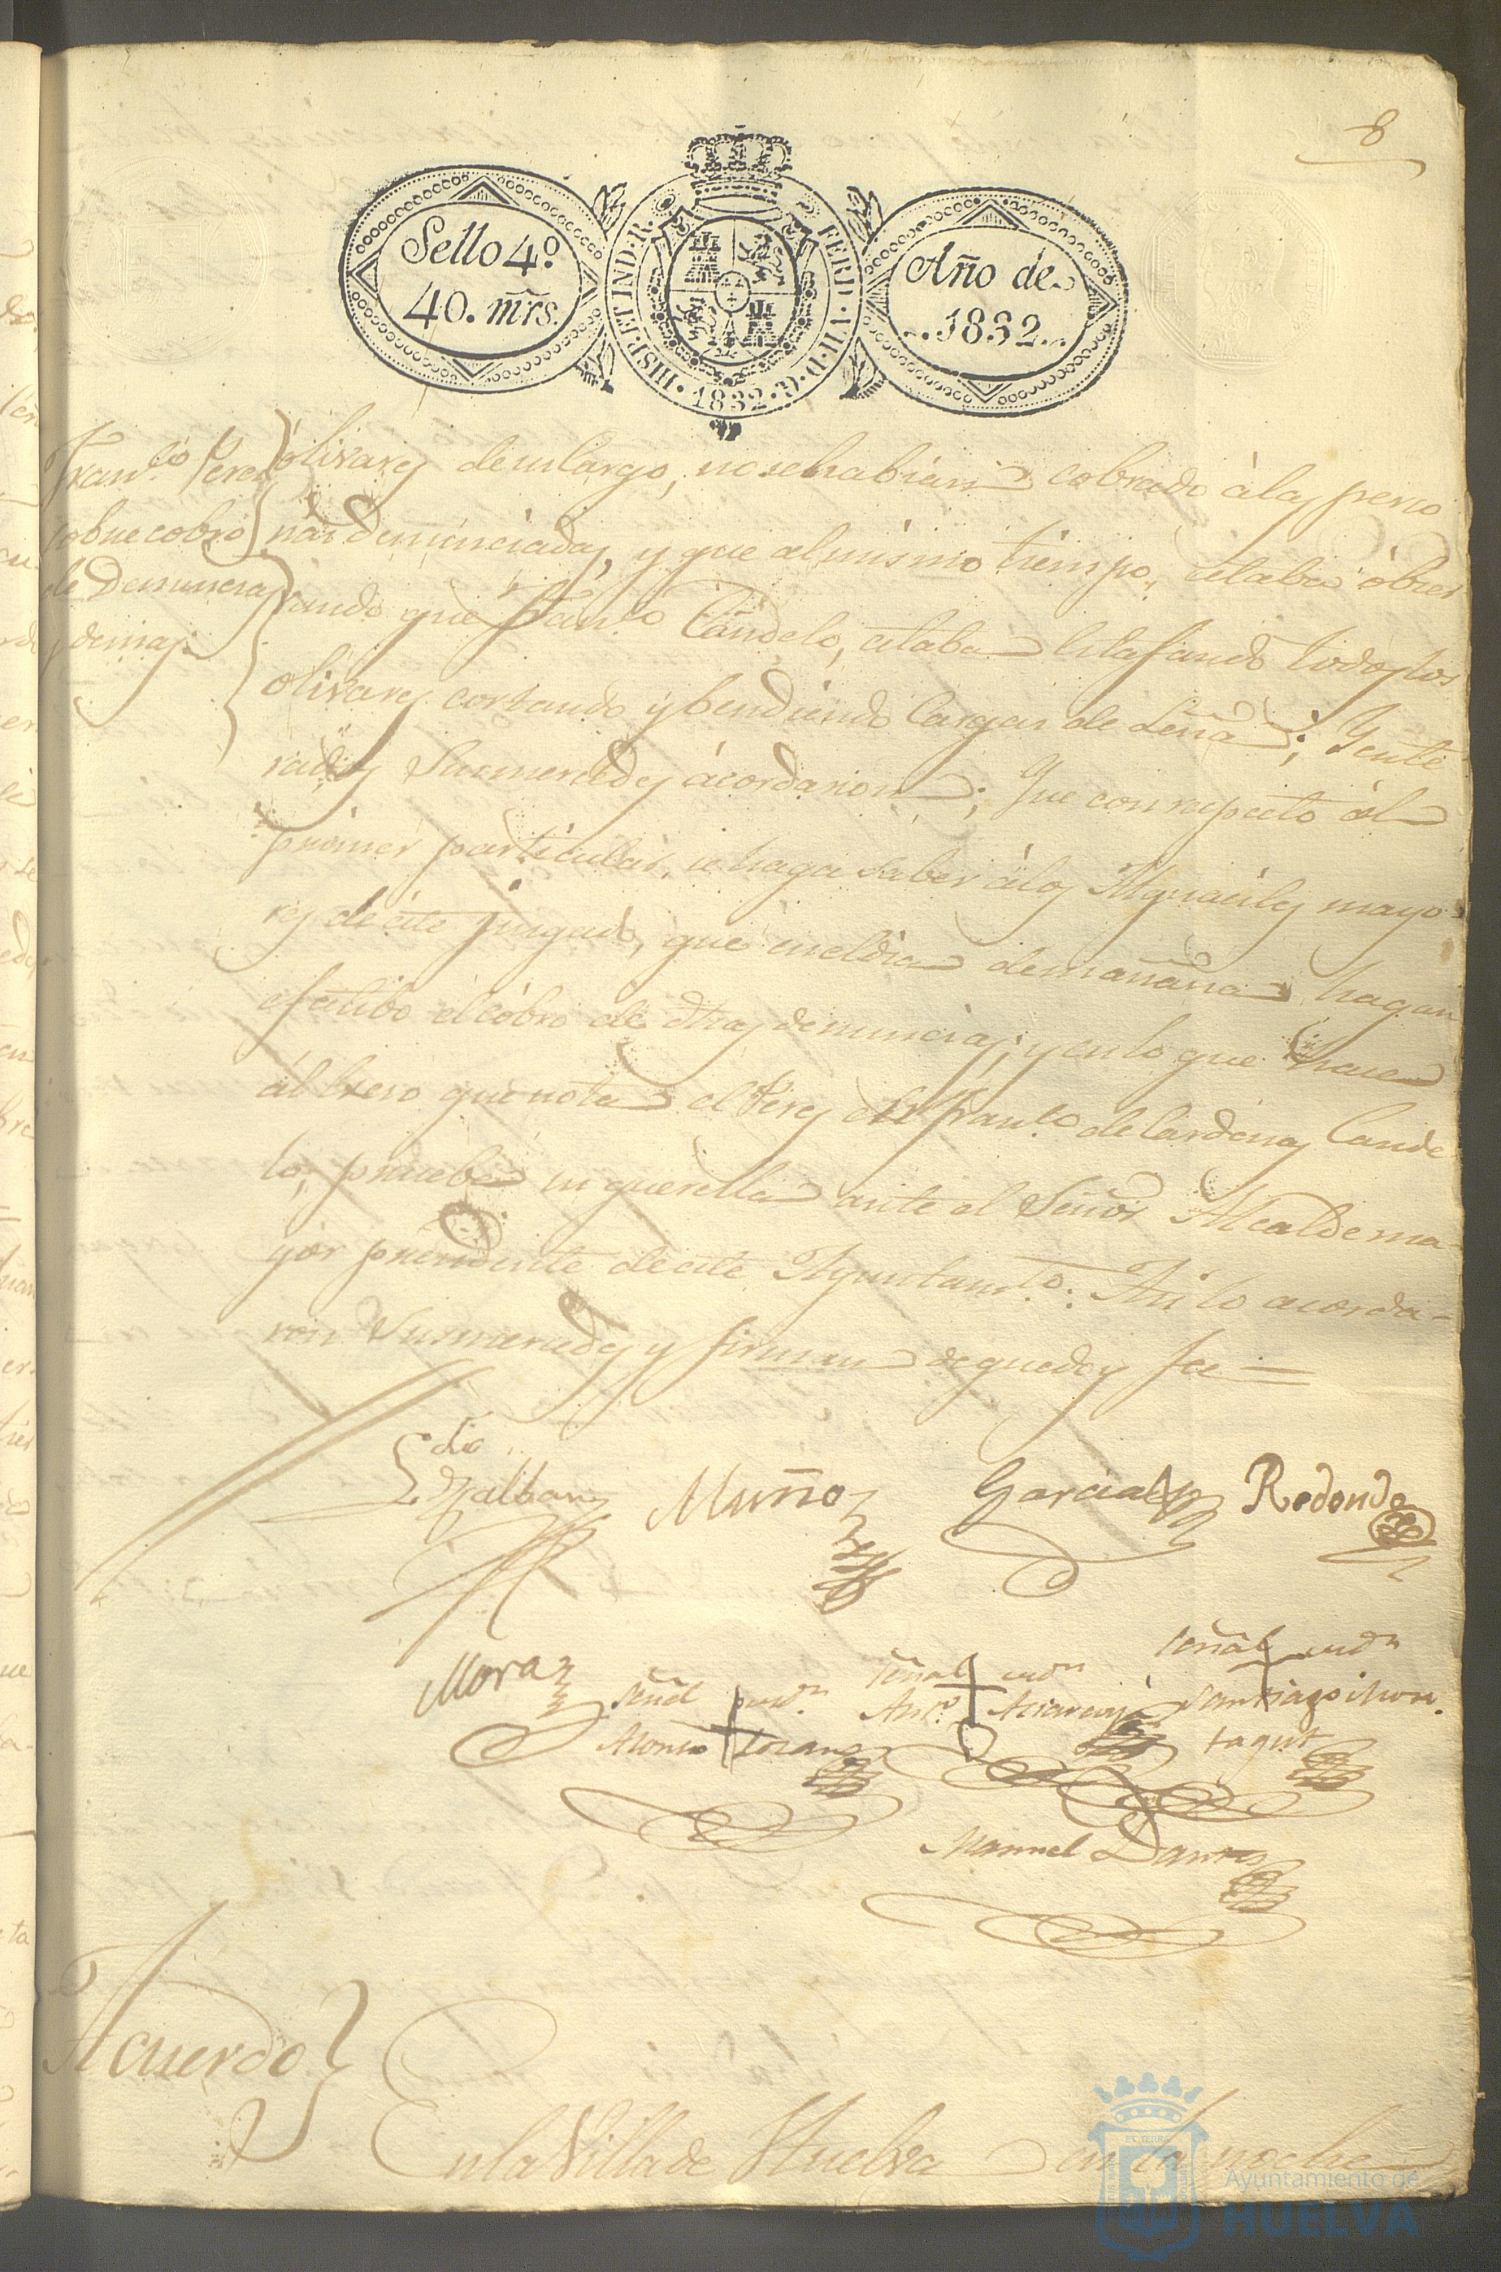 8
Sello 4º
40. mrs.
HISP. ET IND. R. FERD. VII. D. G. 1832.
Año de
1832
Fran.co Perez
sobre cobro
de Denuncias
y demas
olivares de su cargo, no se habian cobrado à las perso
nas denunciadas, y que al mismo tiempo, estaba obser
vando que Fran.co Candelo, estaba estafando todos los
olivares cortando y bendiendo cargas de Leña; Y ente
rados Sus mercedes acordaron; Que con respecto al
primer particular, se haga saber à los Alguaciles mayo
res de este juzgado, que en el dia de mañana hagan
efectibo el cobro de dhas denuncias; y en lo que hace
al exeso que nota el Perez del Fran.co de Cardenas Cande
lo, pruebe su querella ante el Señor Alcalde ma-
yor presidente de este Ayuntam.to: Asi lo acorda-
ron Sus mercedes y firman de que doy fee =
Ldo
Muñoz
Garcia
Redondo
Mora
Señal
Alonso Lozano
Señal
Ant.o
Señal
Santiago
Manuel
Acuerdo
En la Villa de Huelva en la noche
Ayuntamiento de
HUELVA